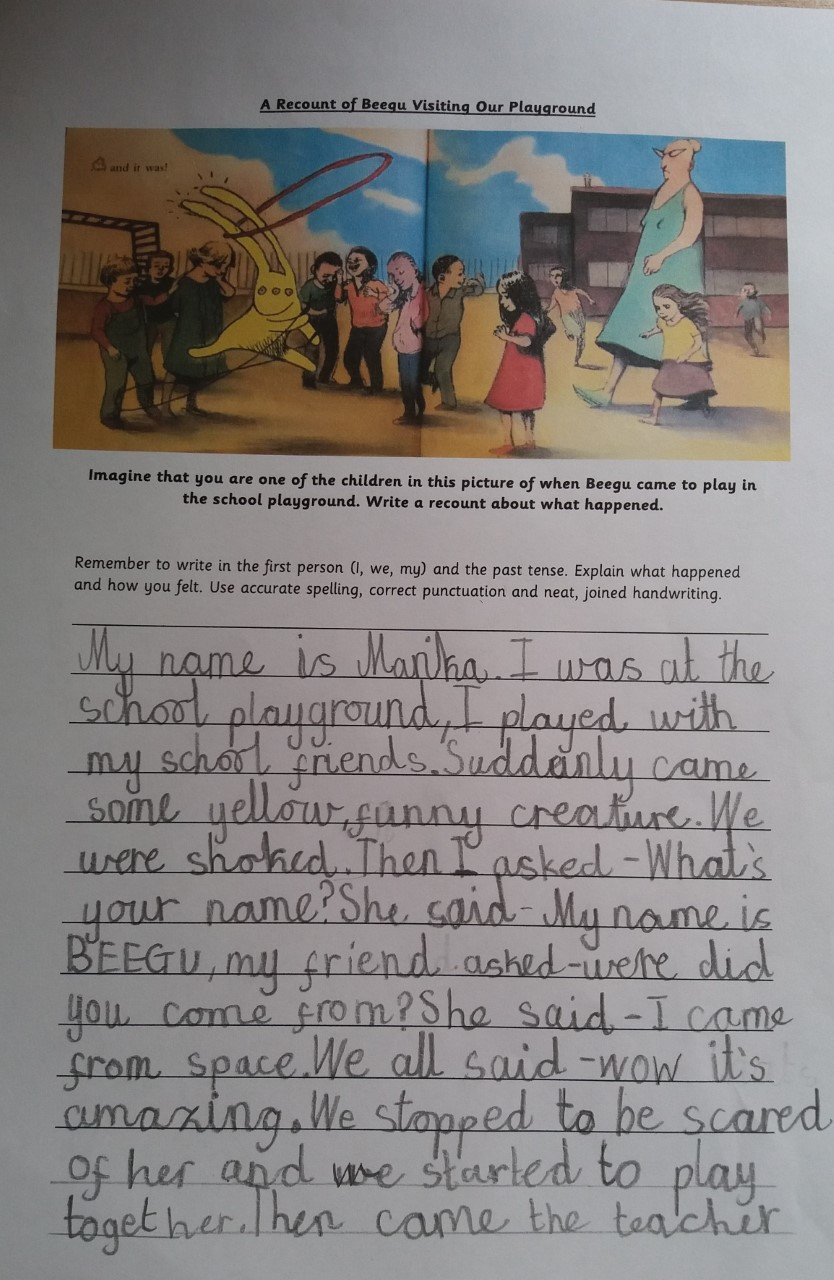 A Recount of Beegu Visiting Our Playground
and it was!
Imagine that you are one of the children in this picture of when Beegu came to play in
the school playground. Write a recount about what happened.
Remember to write in the first person (I, we, my) and the past tense. Explain what happened
and how you felt. Use accurate spelling, correct punctuation and neat, joined handwriting.
My name is Marika. I was at the
school playground, I played with
my school friends. Suddanly came
some yellow, funny creature. We
were shoked. Then I asked - What's
your name? She said - My name is
BEEGU, my friend asked - were did
you come from? She said - I came
from space. We all said - wow it's
amazing. We stopped to be scared
of her and we started to play
together. Then came the teacher